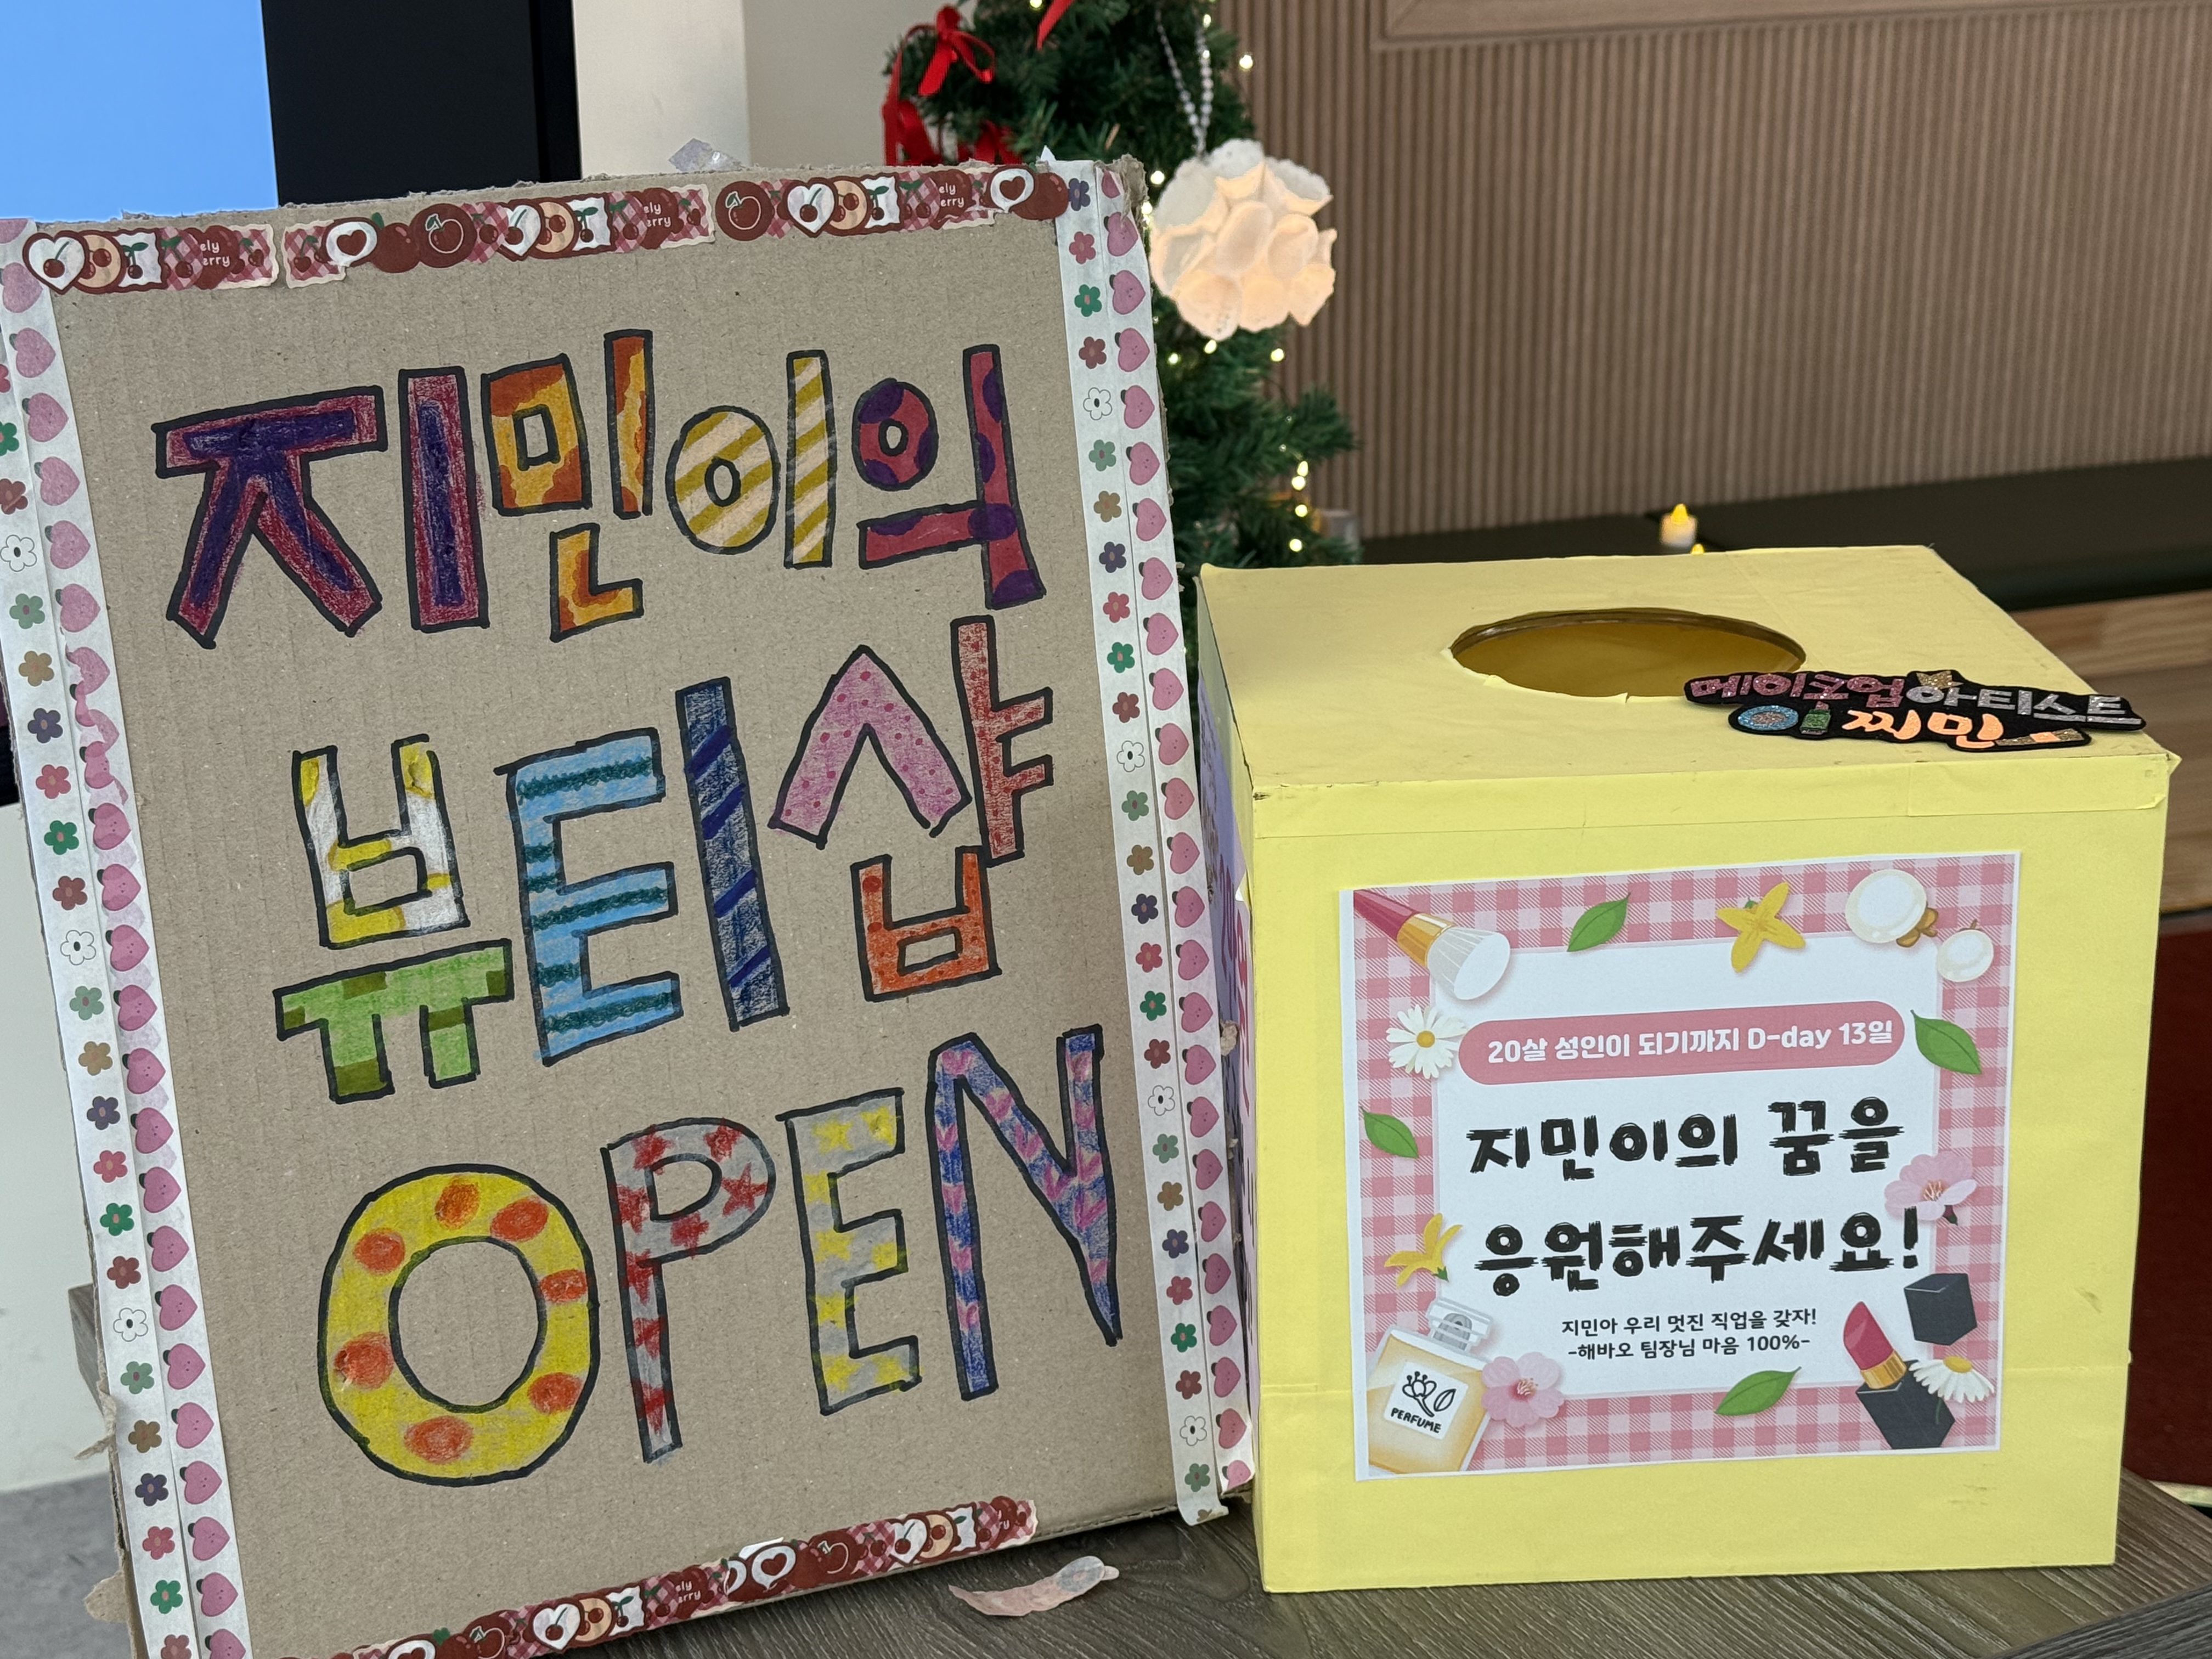 지민이의
뷰티샵
OPEN
메이크업아티스트
이찌민
20살 성인이 되기까지 D-day 13일
지민이의 꿈을
응원해주세요!
지민아 우리 멋진 직업을 갖자!
-해바오 팀장님 마음 100%-
PERFUME